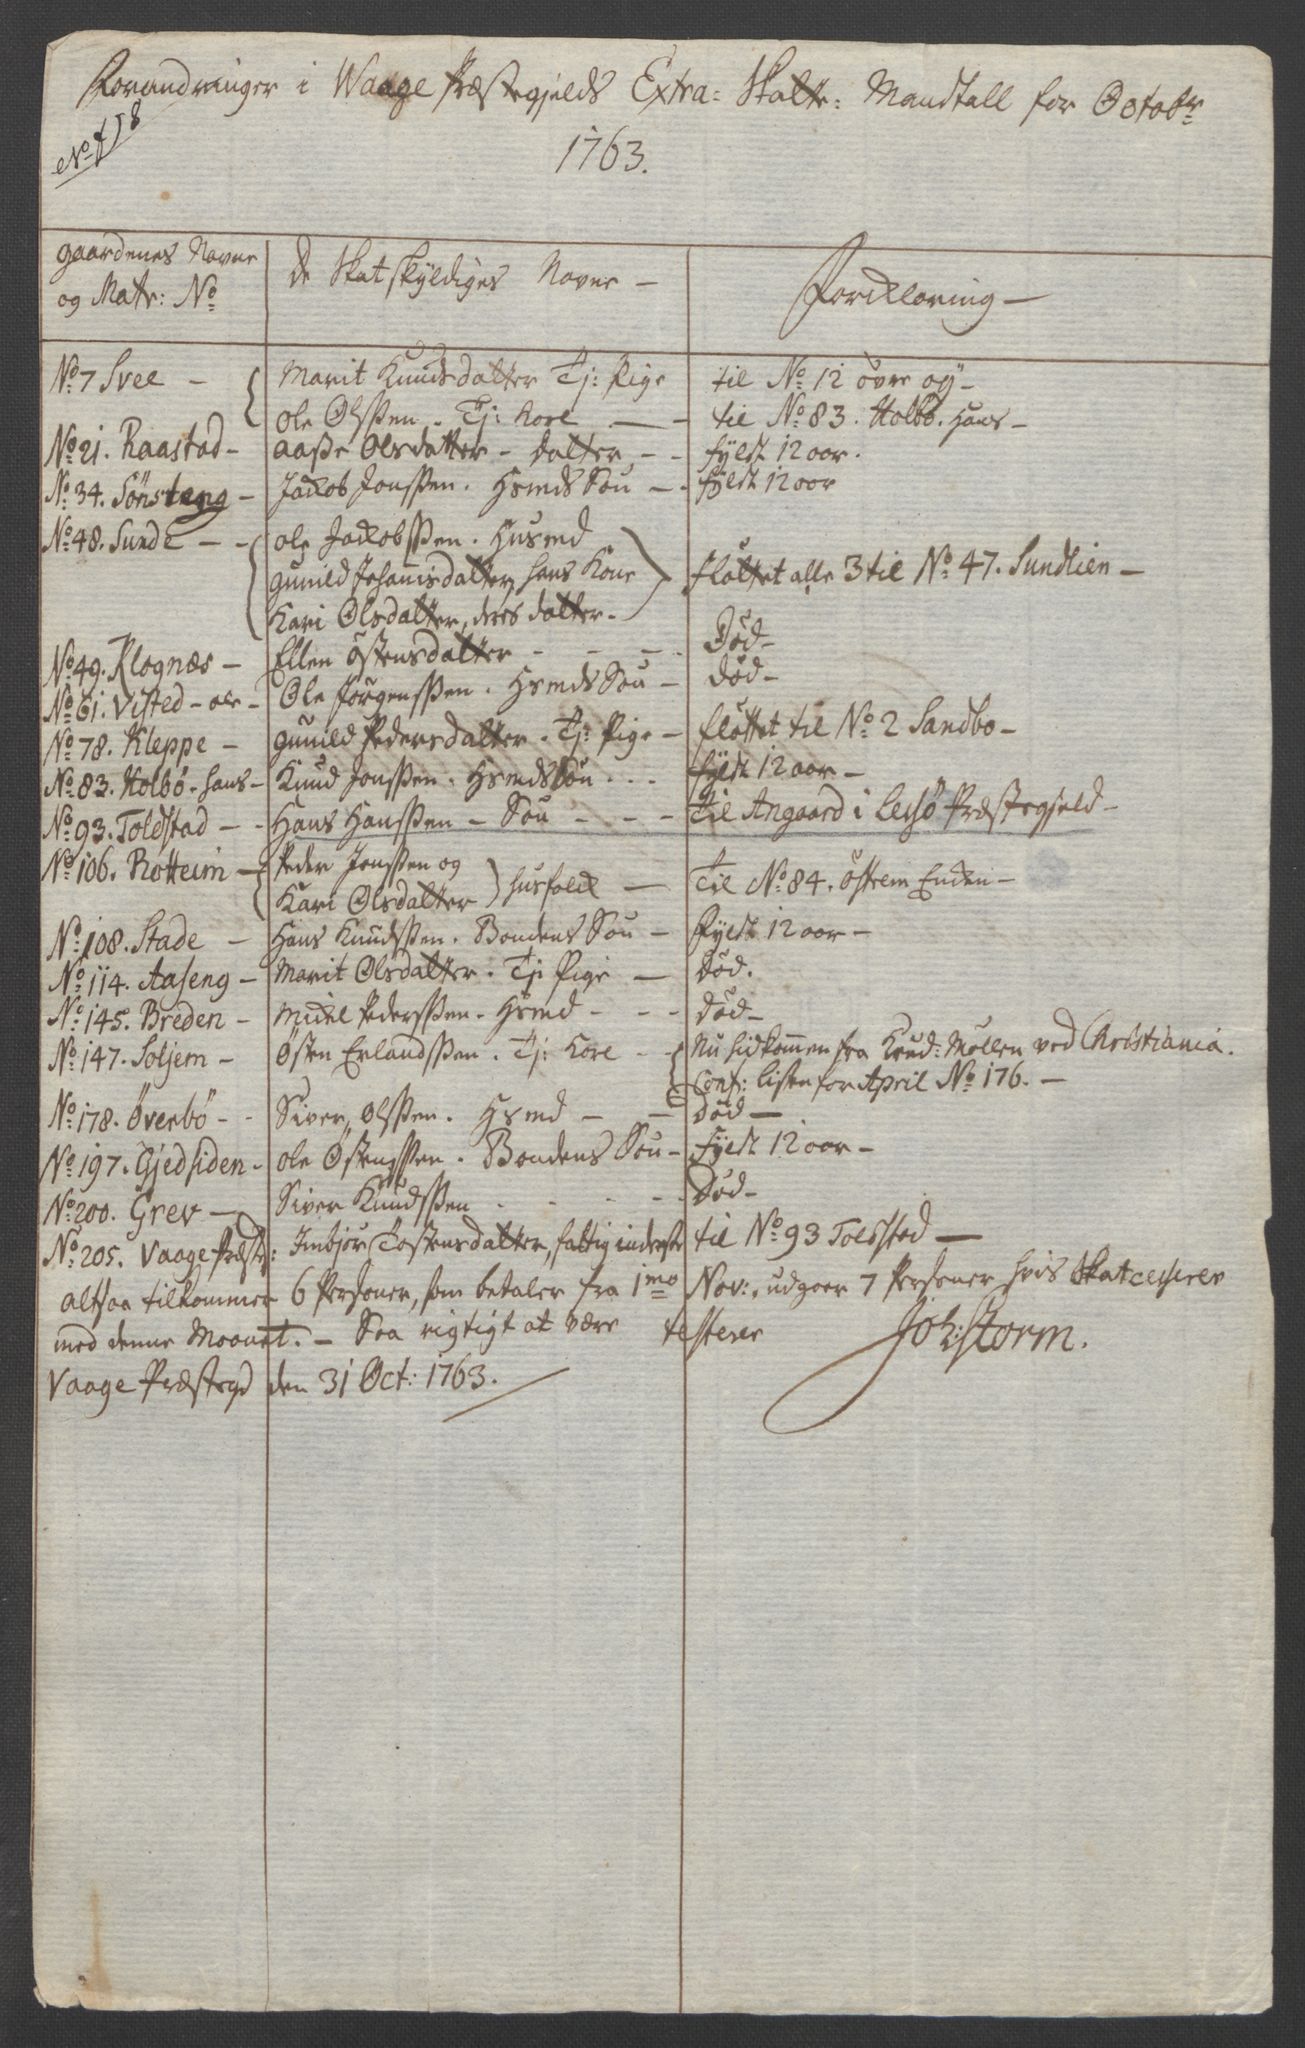 Forandringer i Waage Præstegjelds Extra: Skatte: Mandtall for Octobr
No 18
1763.
gaardenes Navne og Matr: No | De Skatskyldiges Navne — | Forklaring —
No 7 Svee — | Marit Knudsdatter Tj: Pige | til No 12 övre öÿ —
Ole Olssen. Tj: Karl — | til No 83. Holbö. Hans —
No 21. Raastad — | Aasse Olsdatter — datter — | fÿldt 12 aar.
No 34. Sönsteng — | Jackob Jonssen. HsmdsSön — | fÿldt 12 aar
No 48. Sunde — | ole Jackobssen. Husmd
gunild Johannisdatter, hans Kone | flöttet alle 3 til No 47. Sundlien —
Kari Olsdatter, deres datter.
No 49. Klognæs — | Ellen östensdatter — | Död —
No 61. Visted — ole — | Ole Jörgenssen. HsmdsSön — | död —
No 78. Kleppe — | gunild Pedersdatter. Tj: Pige — | flöttet til No 2 Sandbo —
No 83. Holbö. hans — | Knud Jonssen. HsmdsSön | fÿldt 12 aar —
No 93. Toldstad — | Hans Hanssen — Sön — | Til Angaard i Lessö Præstegjeld —
No 106. Rotteim — | Peder Jonssen og
Kari Olsdatter husfolck — | Til No 84. östrem Enden —
No 108. Stade — | Hans Knudssen. Bondens Sön — | Fÿldt 12 aar —
No 114. Aaseng — | Marit Olsdatter. Tj: Pige — | Död.
No 145. Breden — | Mickel Pederssen. Hsmd — | död —
No 147. Soljem — | Östen Erlandssen. Tj: Karl — | Nu hidkommen fra Krud: Möllen ved Christiania.
Conf: listen for April No 176. —
No 178. Överbö — | Siver Olssen. Hsmd — | död —
No 197. Gjedsiden — | ole Östenssen. Bondens Sön — | Fÿldt 12 aar —
No 200. Grev — | Siver Knudssen | död —
No 205. Vaage Præstg: | Imbjör Tostensdatter, fattig inderste | til No 93 Tolsstad —
altsaa tilkommer 6 Personer, som betaler fra 1mo Nov:, udgaar 7 Personer hvis Skat cesserer
med denne Maanet. — Saa rigtigt at være testerer Joh: Storm.
Vaage Præstegd den 31 Oct: 1763.